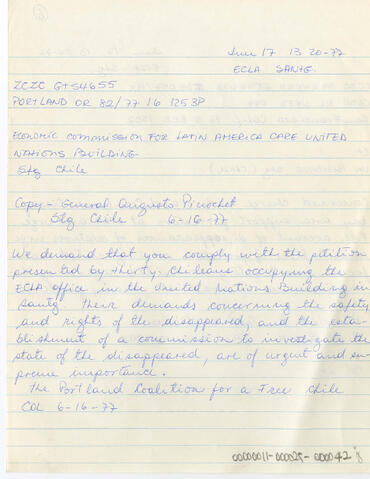 June 17 13 20-77
ECLA SANTG.
ZCZC GTS4655
PORTLAND OR 82/77 16 1253P
ECONOMIC COMMISSION FOR LATIN AMERICA CARE UNITED
NATIONS BUILDING
Stg Chile
Copy - General Augusto Pinochet
Stg Chile 6-16-77
We demand that you comply with the petition
presented by thirty Chileans occupying the
ECLA office in the United Nations Building in
Santg. Their demands concerning the safety
and rights of the disappeared, and the esta-
blishment of a commission to investigate the
state of the disappeared, are of urgent and su-
preme importance.
The Portland Coalition for a Free Chile
COL 6-16-77
0000011-000025-000042